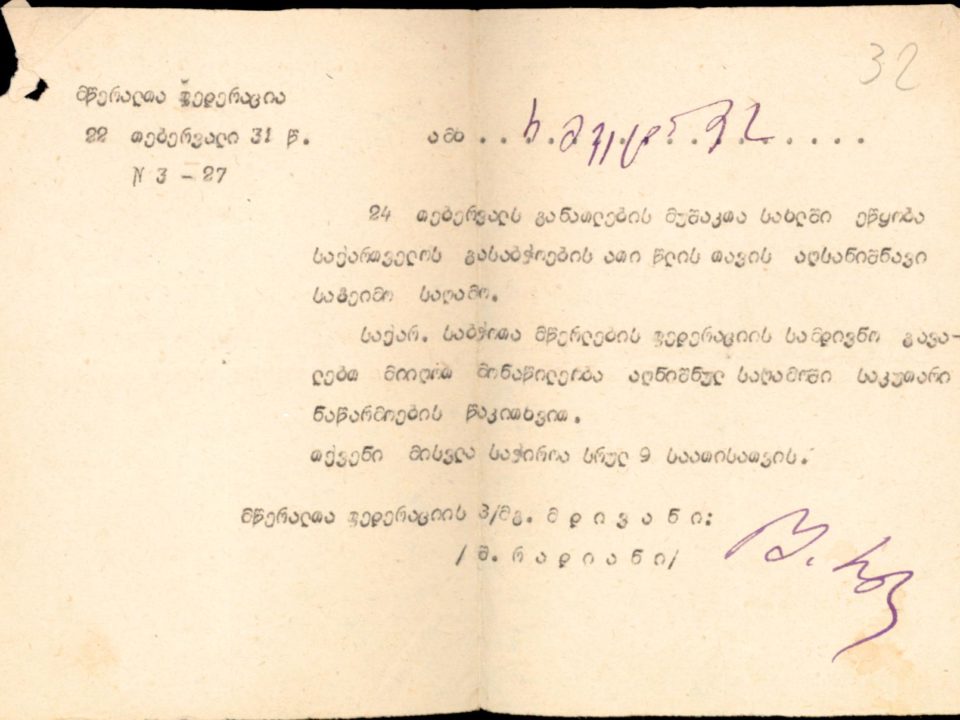 32
მწერალთა ფედერაცია
22 თებერვალი 31 წ.
ამხ
N 3 - 27
24 თებერვალს განათლების მუშაკთა სახლში ეწყობა
საქართველოს გასაბჭოების ათი წლის თავის აღსანიშნავი
საზეიმო საღამო.
საქარ. საბჭოთა მწერლების ფედერაციის სამდივნო გავა-
ლებთ მიიღოთ მონაწილეობა აღნიშნულ საღამოში საკუთარი
ნაწარმოების წაკითხვით.
თქვენი მისვლა საჭიროა სრულ 9 საათისათვის.
მწერალთა ფედერაციის პ/მგ. მდივანი:
/შ. რადიანი/